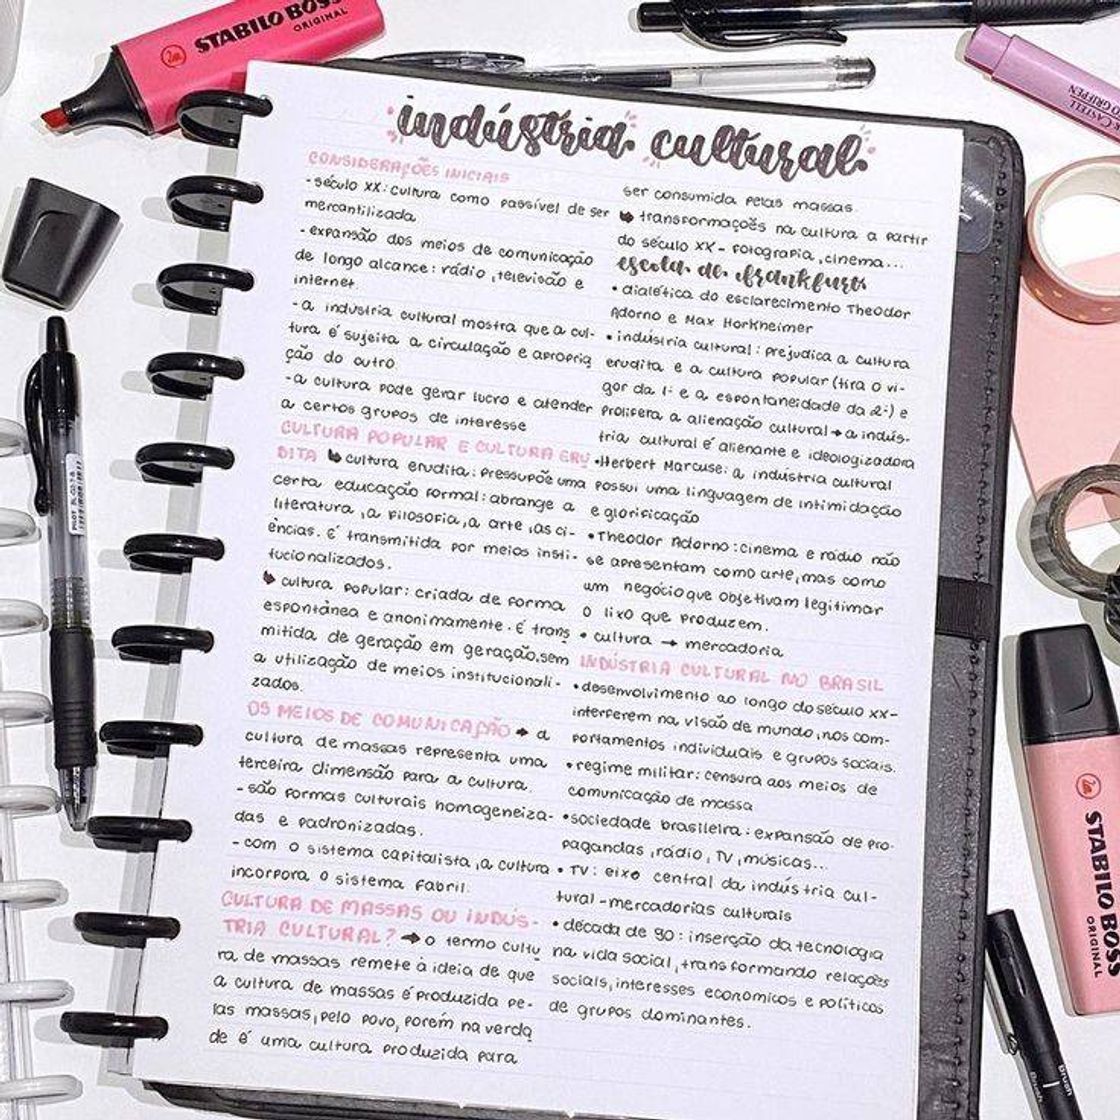 STABILO BOSS
ORIGINAL
indústria cultural
CONSIDERAÇÕES INICIAIS
- século XX: cultura como passível de ser
mercantilizada
- expansão dos meios de comunicação
de longo alcance: rádio, televisão e
internet
- a indústria cultural mostra que a cul-
tura é sujeita a circulação e apropria
ção do outro
- a cultura pode gerar lucro e atender
a certos grupos de interesse
CULTURA POPULAR E CULTURA ERU
DITA ↳ cultura erudita: pressupõe uma
certa educação formal: abrange a
literatura, a filosofia, a arte, as ci-
ências. É transmitida por meios insti-
tucionalizados.
↳ cultura popular: criada de forma
espontânea e anonimamente. É trans
mitida de geração em geração, sem
a utilização de meios institucionali-
zados.
OS MEIOS DE COMUNICAÇÃO → a
cultura de massas representa uma
terceira dimensão para a cultura.
- são formas culturais homogeneiza-
das e padronizadas.
- com o sistema capitalista, a cultura
incorpora o sistema fabril.
CULTURA DE MASSAS OU INDÚS-
TRIA CULTURAL? → o termo cultu
ra de massas remete à ideia de que
a cultura de massas é produzida pe-
las massas, pelo povo, porém na verda
de é uma cultura produzida para
ser consumida pelas massas.
↳ transformações na cultura a partir
do século XX - fotografia, cinema...
escola de frankfurt
• dialética do esclarecimento Theodor
Adorno e Max Horkheimer
• indústria cultural: prejudica a cultura
erudita e a cultura popular (tira o vi-
gor da 1ª e a espontaneidade da 2ª) e
prolifera a alienação cultural → a indús-
tria cultural é alienante e ideologizadora
• Herbert Marcuse: a indústria cultural
possui uma linguagem de intimidação
e glorificação
• Theodor Adorno: cinema e rádio não
se apresentam como arte, mas como
um negócio que objetivam legitimar
o lixo que produzem.
• cultura → mercadoria
INDÚSTRIA CULTURAL NO BRASIL
• desenvolvimento ao longo do século XX -
interferem na visão de mundo, nos com-
portamentos individuais e grupos sociais.
• regime militar: censura aos meios de
comunicação de massa
• sociedade brasileira: expansão de pro-
pagandas, rádio, TV, músicas...
• TV: eixo central da indústria cul-
tural - mercadorias culturais
• década de 90: inserção da tecnologia
na vida social, transformando relações
sociais, interesses econômicos e políticos
de grupos dominantes.
STABILO BOSS
ORIGINAL
PILOT
Brush